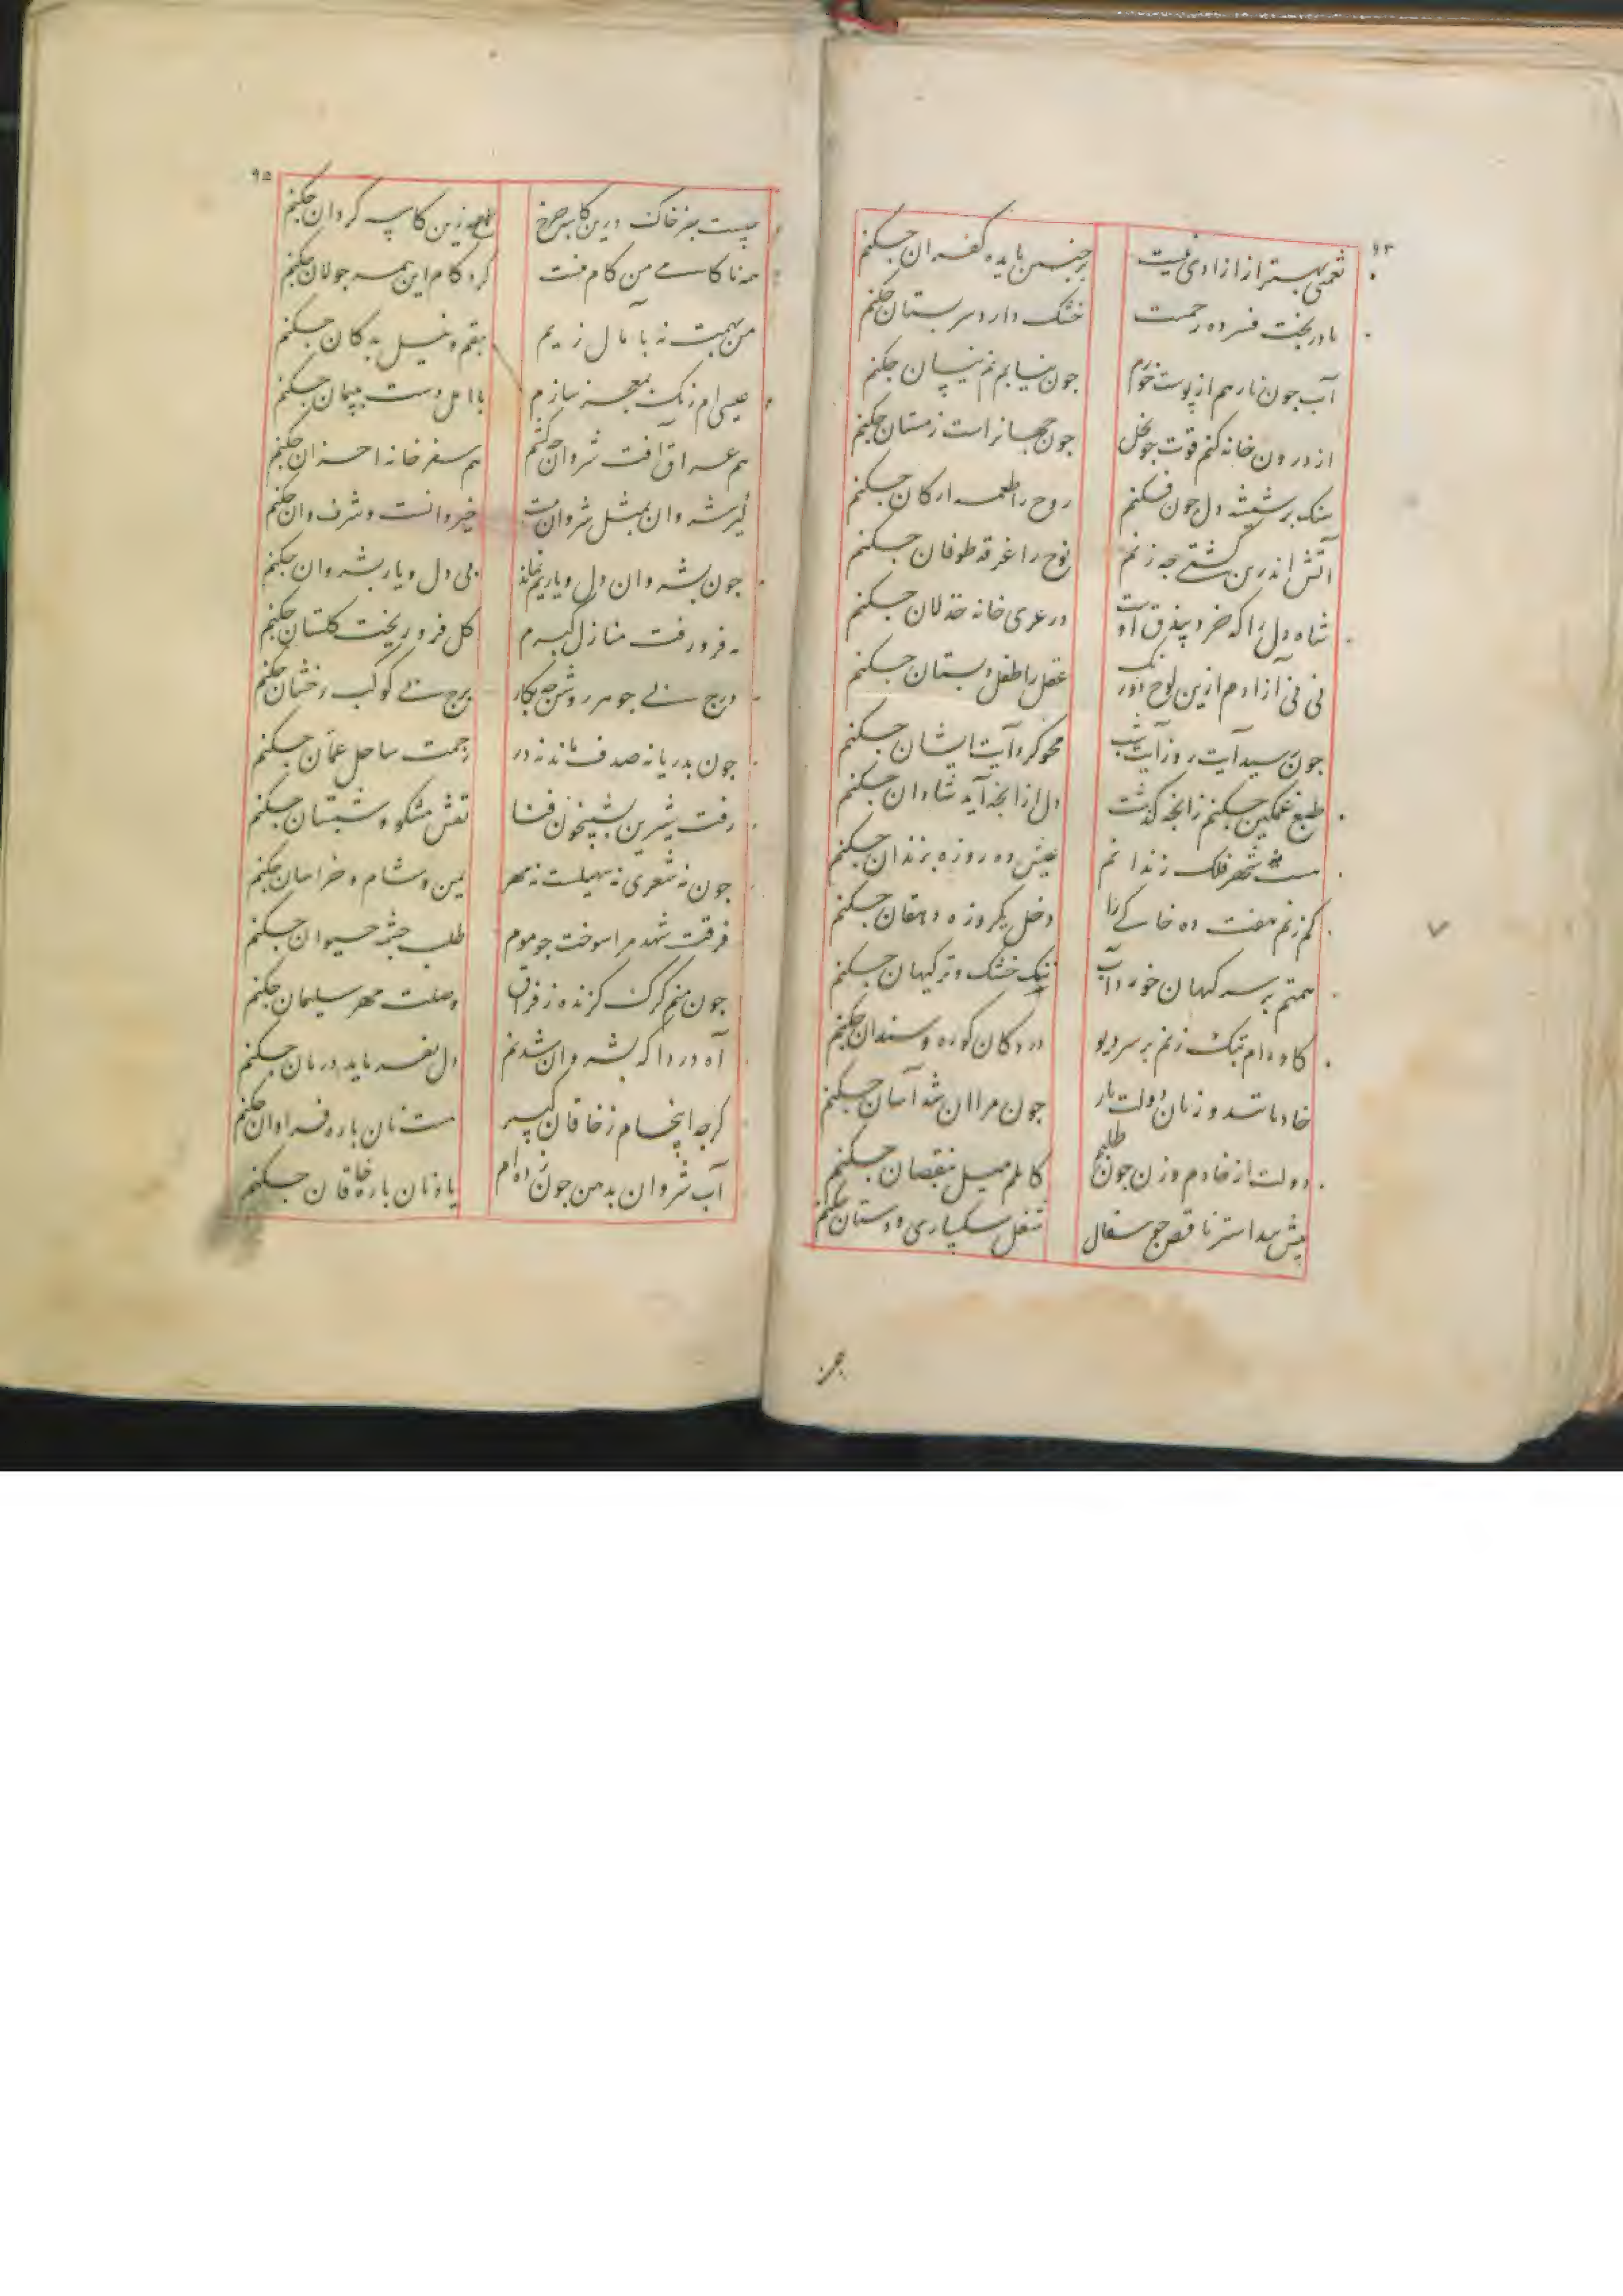 ۹۴
نعمتی بهتر از ازادی نیست / بر چنین مایده کفران چکنم
مادر بخت فسرده رحمست / خشک دارد سر پستان چکنم
آب چون نار هم از پوست خورم / چون نیابم نم نیسان چکنم
از درون خانه کنم قوت چو نحل / چون جهانراست زمستان چکنم
سنک بر شیشه دل چون فکنم / روح را طعمه ارکان چکنم
آتش اندر بن کشتی چه زنم / نوح را غرقه طوفان چکنم
شاه دل را که خرد بیذق اوست / در عری خانه خذلان چکنم
نی نی آزادم ازین لوح دو رنک / عقل را طفل دبستان چکنم
چون سید آیت روز آیت شب / محو کرد آیت ایشان چکنم
طبع غمکین چکنم زانچه کذشت / دل از انچه آید شادان چکنم
هست شهر فلک زندانم / عیش ده روزه بزندان چکنم
کم زنم هفت ده خاکی را / دخل یکروزه دهقان چکنم
همتم بر سر کیهان خورد آب / ننک خشک و تر کیهان چکنم
کاوه ام پتک زنم بر سر دیو / در دکان کوره و سندان چکنم
خادمانند و زنان دولت یار / چون مرا ان نشد آسان چکنم
دولت از خادم و زن چون طلبم / کاملم میل بنقصان چکنم
پیش تند استر ناقص چو سفال / شغل سکپاری و دستان چکنم
چیست
۹۵
چیست جز خاک درین کاسه چرخ / طمع زین کاسه کردان چکنم
همه ناکامی من کام منست / کرد کام این همه جولان چکنم
من بهمت نه بآمال زیم / بقم و نیل بدکان چکنم
عیسی ام رنک بمعجز سازم / با اهل دست بپیمان چکنم
هم عراق آفت شروان چکنم / هم سفر خانه احزان چکنم
کیر شروان بمثل شروانست / خیروانست و شرف وان چکنم
چون بشروان دل و یاریم نماند / بی دل و یار بشروان چکنم
مه فرو رفت منازل کیرم / کل فرو ریخت کلستان چکنم
درج بی جوهر روشن چه بکار / برج بی کوکب رخشان چکنم
چون بدریا نه صدف ماند نه در / زحمت ساحل عمان چکنم
رفت شیرین بشبیخون فنا / نقش مشکو و شبستان چکنم
چون نه شعری نه سهیلست نه مهر / یمن و شام و خراسان چکنم
فرقت شهد مرا سوخت چو موم / طلب چشمه حیوان چکنم
چون منم کرک کزنده ز فراق / وصلت مهر سلیمان چکنم
آه دردا که بشروان شدنم / دل نفرماید درمان چکنم
کرچه اینجام ز خاقان کبیر / هست نان پاره فراوان چکنم
آب شروان بدهن چون زده ام / یاد نان پاره خاقان چکنم